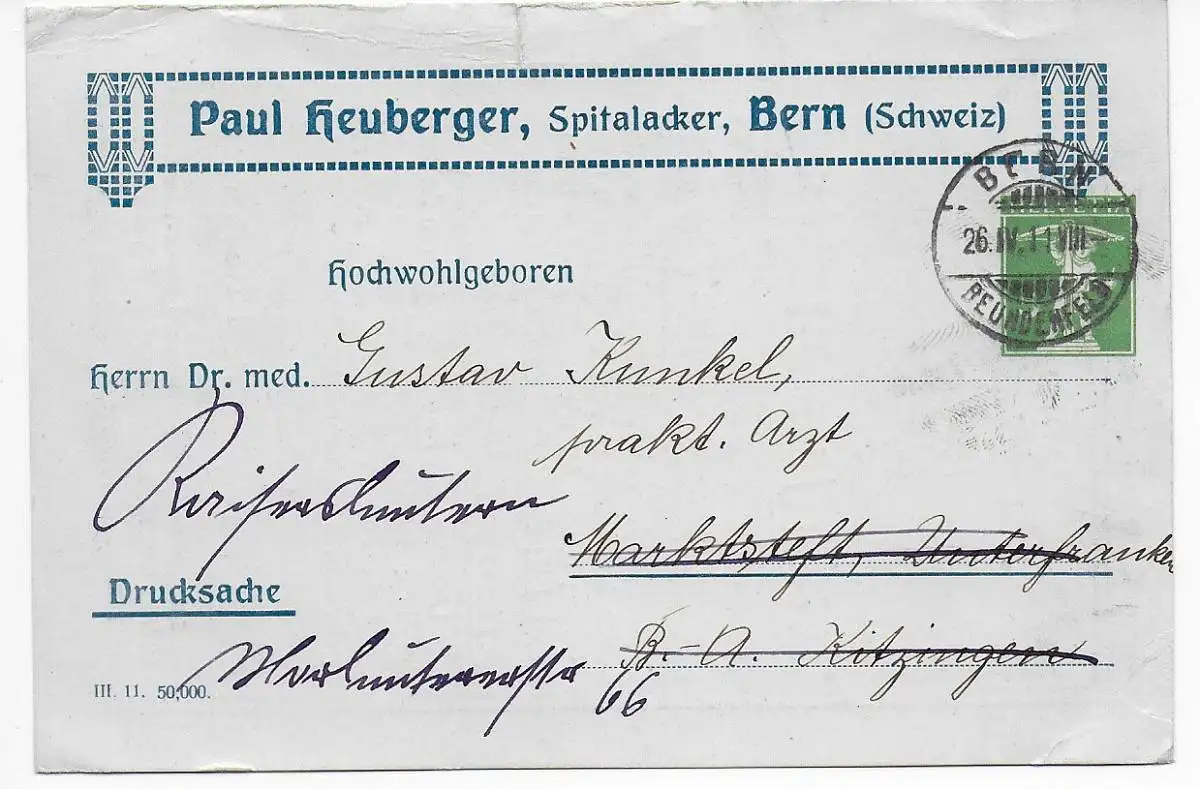 Paul Heuberger, Spitalacker, Bern (Schweiz)
BERN
26.IV.11 VIII
BEUNDENFELD
HELVETIA
Hochwohlgeboren
Herrn Dr. med. Gustav Kunkel,
prakt. Arzt
Kaiserslautern
Marktsteft, Unterfranken
Drucksache
B.-A. Kitzingen
Morlautererstr
66
III. 11. 50,000.